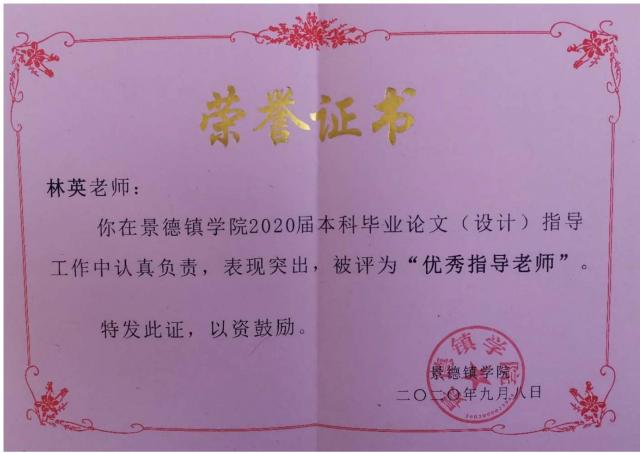 荣誉证书
林英老师：
你在景德镇学院2020届本科毕业论文（设计）指导
工作中认真负责，表现突出，被评为“优秀指导老师”。
特发此证，以资鼓励。
景德镇学院
二〇二〇年九月八日